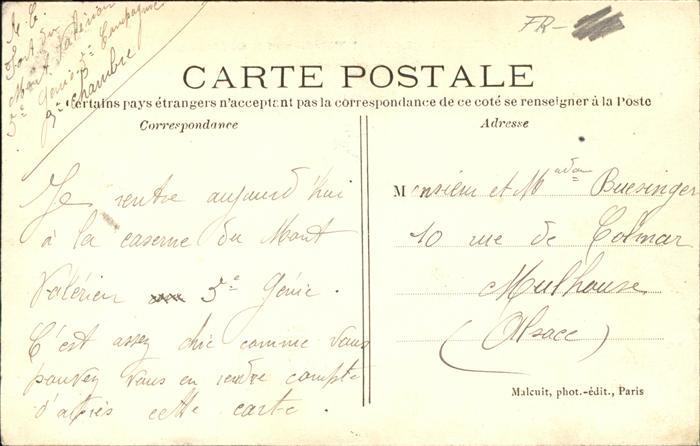 M. C.
Fort du
Mont Valérien
5e Génie 5e Compagnie
9e Chambre
FR-
CARTE POSTALE
Certains pays étrangers n'acceptant pas la correspondance de ce coté se renseigner à la Poste
Correspondance
Je rentre aujourd'hui
à la caserne du Mont
Valérien 5e Génie.
C'est assez chic comme vous
pouvez vous en rendre compte
d'après cette carte.
Adresse
Monsieur et Madame Buesinger
10 rue de Colmar
Mulhouse
(Alsace)
Malcuit, phot.-édit., Paris